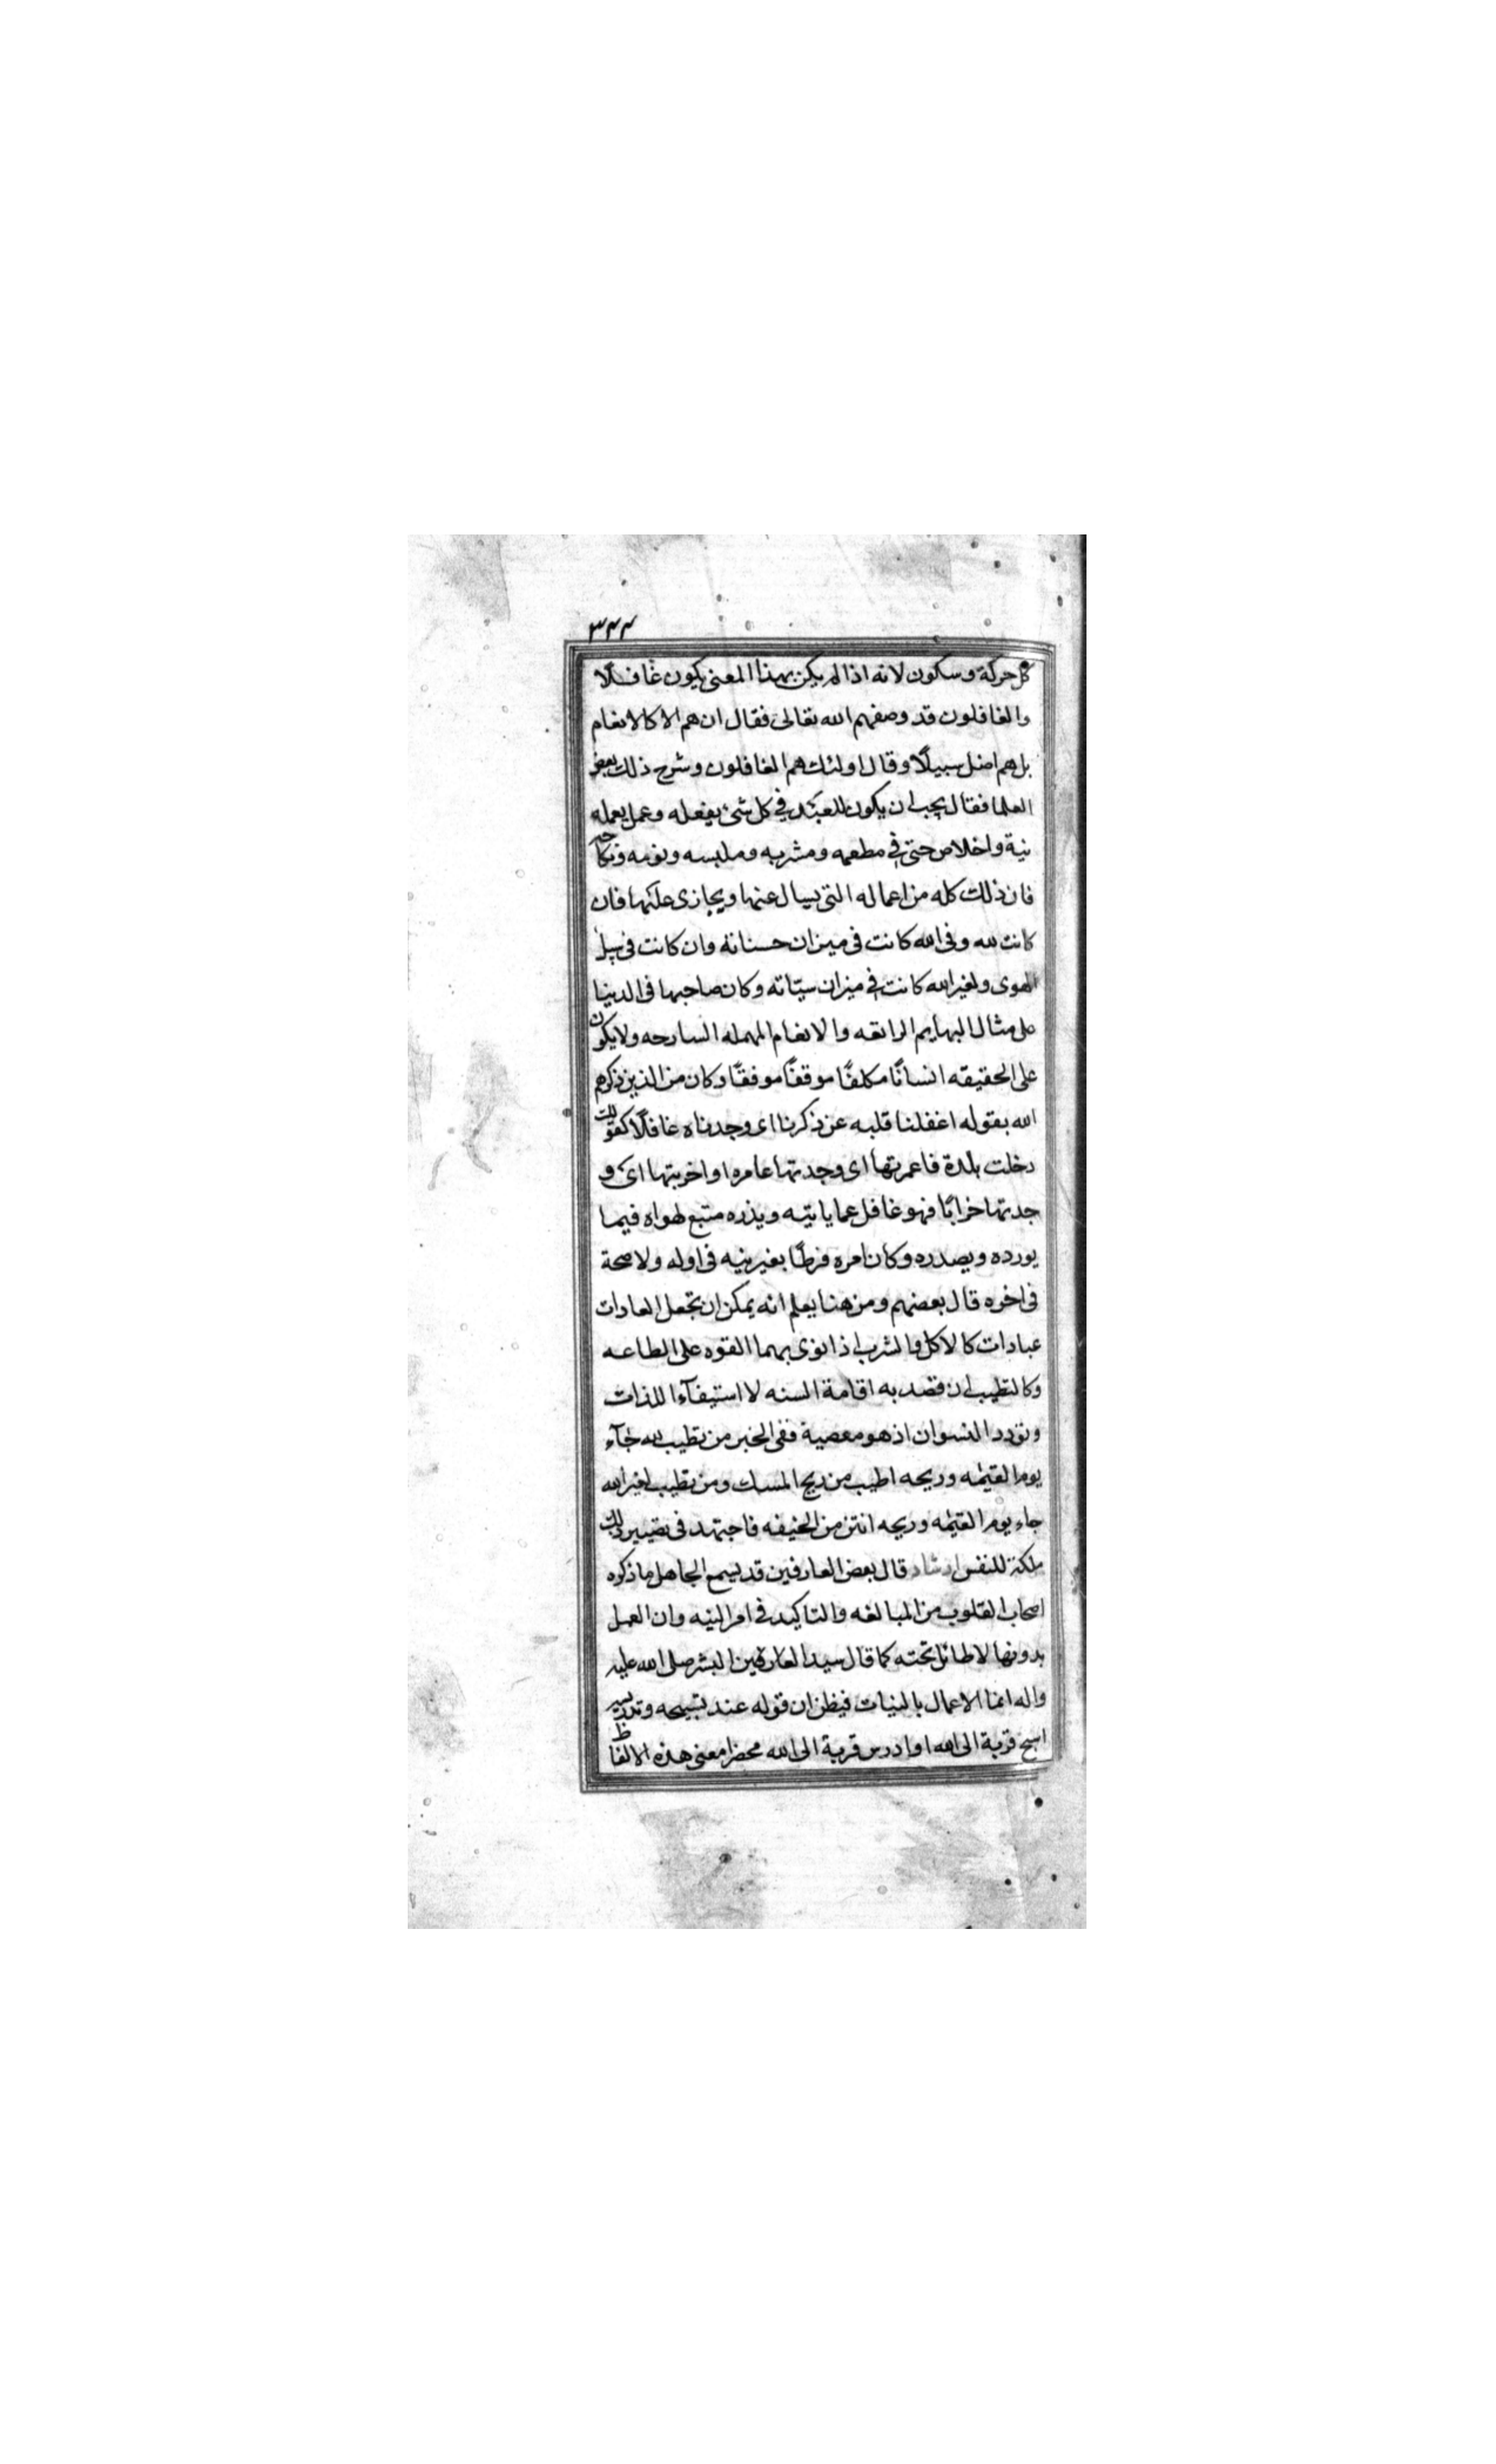 ٣٤٤
كل حركة وسكون لانه اذا لم يكن بهذا المعنى يكون غافلًا
والغافلون قد وصفهم الله تعالى فقال ان هم الا كالانعام
بل هم اضل سبيلًا وقال اولئك هم الغافلون وشرح ذلك بعض
العلما فقال يجب ان يكون للعبد في كل شئ يفعله وعمل يعمله
نية واخلاص حتى في مطعمه ومشربه وملبسه ونومه ونكاحه
فان ذلك كله من اعماله التى يسال عنها ويجازى عليها فان
كانت لله وفى الله كانت فى ميزان حسناته وان كانت فى سبيل
الهوى ولغير الله كانت في ميزان سيّاته وكان صاحبها فى الدنيا
على مثال البهايم الراتعه والانعام المهمله السارحه ولا يكون
على الحقيقه انسانًا مكلفًا موقفًا موفقًا وكان من الذين ذكرهم
الله بقوله اغفلنا قلبه عن ذكرنا اى وجدناه غافلًا كقولك
دخلت بلدة فاعمرتها اى وجدتها عامره او اخربتها اى و
جدتها خرابًا فهو غافل عما ياتيه ويذره متبع لهواه فيما
يورده ويصدره وكان امره فرطًا بغير نيه فى اوله ولا صحة
فى اخره قال بعضهم ومن هنا يعلم انه يمكن ان تجعل العادات
عبادات كالاكل والشرب اذا نوى بهما القوه على الطاعه
وكالتطيب ان قصد به اقامة السنه لا استيفآء اللذات
وتودد النسوان اذ هو معصية ففى الخبر من تطيب لله جآء
يوم القيٰمه وريحه اطيب من ريح المسك ومن تطيب لغير الله
جاء يوم القيٰمه وريحه انتن من الجيفه فاجتهد فى تصيير ذلك
ملكة للنفس ارشاد قال بعض العارفين قد يسمع الجاهل ما ذكره
اصحاب القلوب من المبالغه والتاكيد في امر النيه وان العمل
بدونها لا طائل تحته كما قال سيد العارفين البشر صلى الله عليه
واله انما الاعمال بالنيات فيظن ان قوله عند تسبيحه وتدريسه
اسبح قربة الى الله او ادرس قربة الى الله محضرا معنى هذه الالفاظ